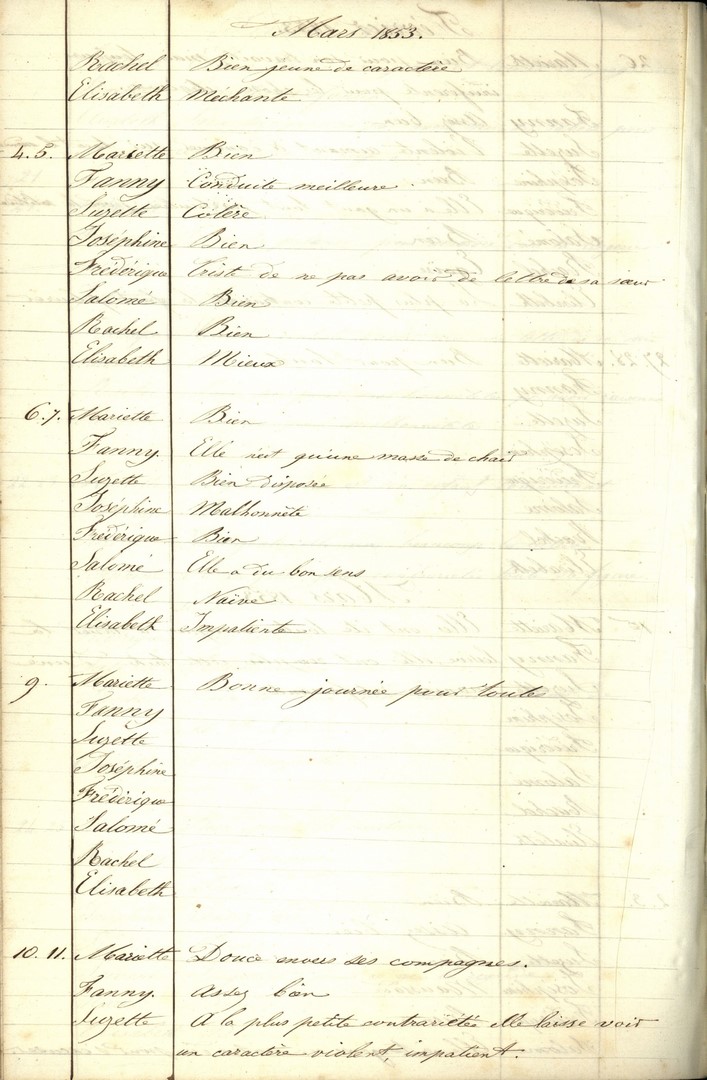 Mars 1853.
Rachel Bien jeune de caractère
Elisabeth Méchante
4.5. Mariette Bien
Fanny Conduite meilleure.
Suzette Colère
Joséphine Bien
Frédérique Triste de ne pas avoir de lettre de sa sœur
Salomé Bien
Rachel Bien
Elisabeth Mieux
6.7. Mariette Bien
Fanny. Elle n'est qu'une masse de chair
Suzette Bien disposée
Joséphine Malhonnête
Frédérique Bien
Salomé Elle a du bon sens
Rachel Naïve
Elisabeth Impatiente
9. Mariette Bonne journée pour toutes
Fanny
Suzette
Joséphine
Frédérique
Salomé
Rachel
Elisabeth
10. 11. Mariette Douce envers ses compagnes.
Fanny. Assez bien
Suzette A la plus petite contrariété elle laisse voir
un caractère violent, impatient.